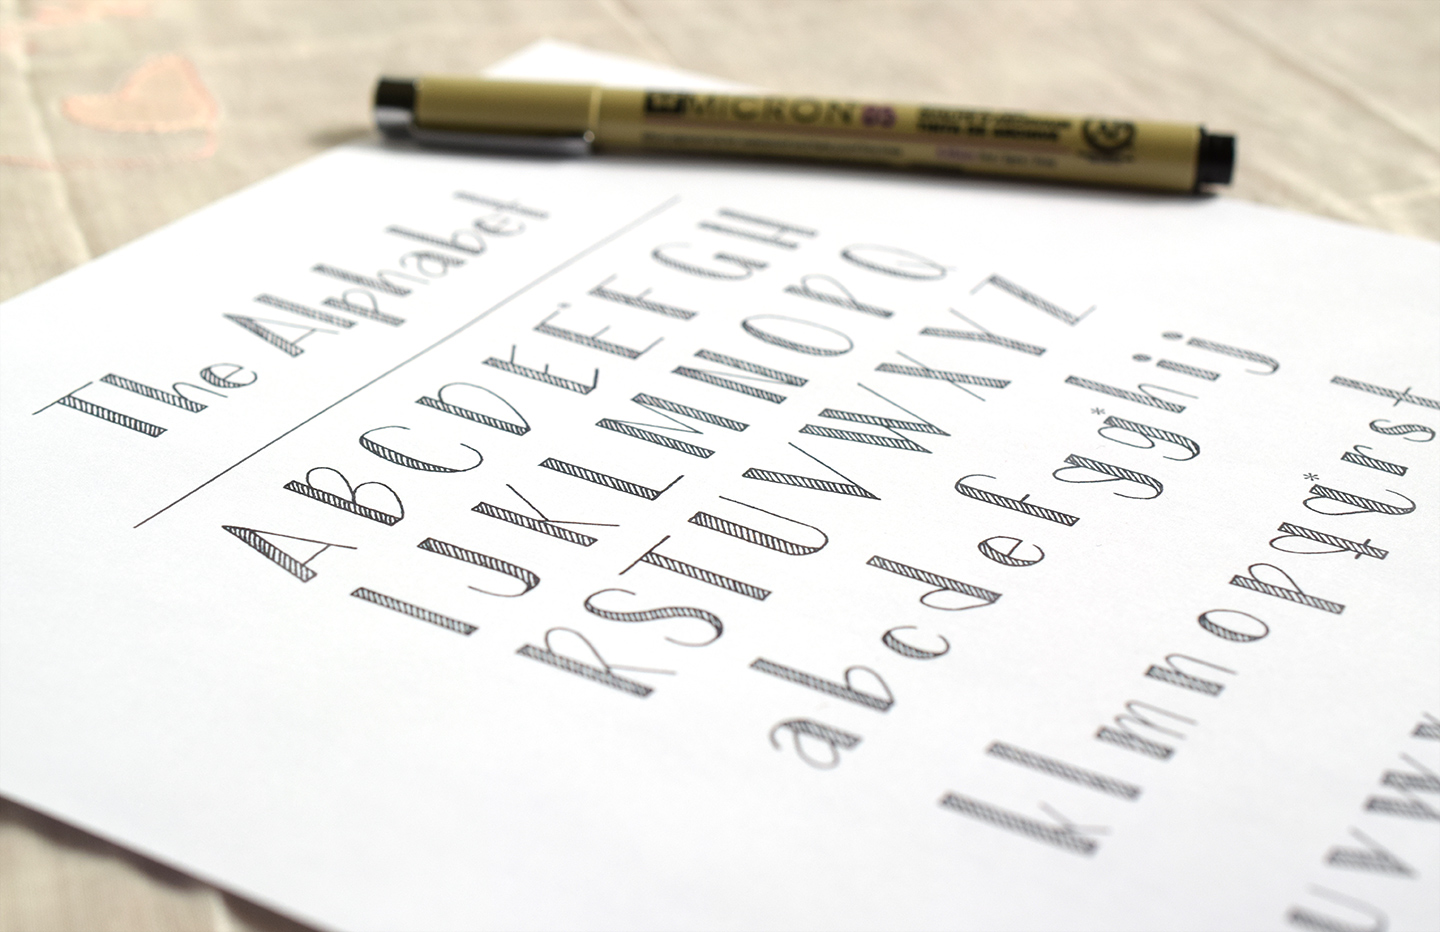 MICRON 05
The Alphabet
A B C D E E F G H
I J K L M N O P Q
R S T U V W X Y Z
a b c d e f g g* h i j
k l m n o p q q* r s t
u v w